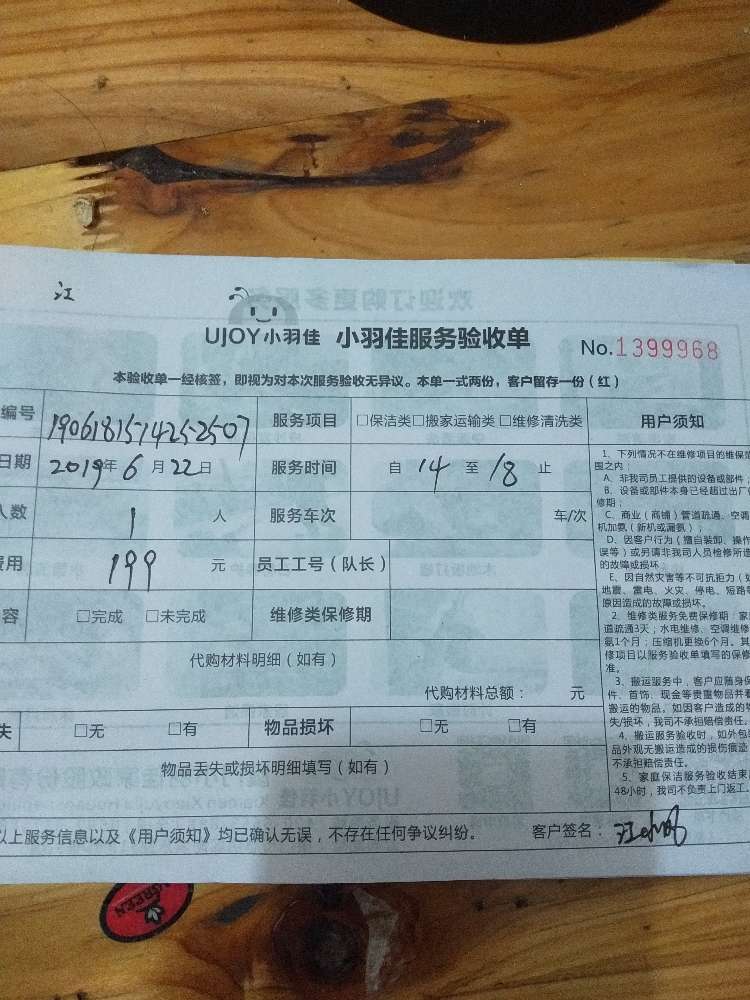 江
欢迎订购更多服务
UJOY小羽佳 小羽佳服务验收单
No.1399968
本验收单一经核签，即视为对本次服务验收无异议。本单一式两份，客户留存一份（红）
编号 19061815714252507 服务项目 □保洁类□搬家运输类□维修清洗类 用户须知
日期 2019年6月22日 服务时间 自 14 至 18 止
人数 1 人 服务车次 车/次
费用 199 元 员工工号（队长）
容 □完成 □未完成 维修类保修期
代购材料明细（如有）
代购材料总额： 元
失 □无 □有 物品损坏 □无 □有
物品丢失或损坏明细填写（如有）
以上服务信息以及《用户须知》均已确认无误，不存在任何争议纠纷。 客户签名：
1、下列情况不在维修项目的维保范
围之内：
A、非我司员工提供的设备或部件；
B、设备或部件本身已经超过出厂保
修期；
C、商业（商铺）管道疏通、空调
机加氨（新机或漏氨）；
D、因客户行为（擅自装卸、操作
误等）或另请非我司人员检修所造
的故障或损坏
E、因自然灾害等不可抗拒力（如
地震、雷电、火灾、停电、短路等
原因造成的故障或损坏。
2、维修类服务免费保修期：家
道疏通3天；水电维修、空调维修
氨1个月；压缩机更换6个月。其
修项目以服务验收单填写的保修
准。
3、搬运服务中，客户应随身保
件、首饰、现金等贵重物品并看
搬运的物品。如因客户造成的物
失/损坏，我司不承担赔偿责任。
4、搬运服务验收时，如外包装
品外观无搬运造成的损伤痕迹
不承担赔偿责任。
5、家庭保洁服务验收结束
48小时，我司不负责上门返工。
GREEN